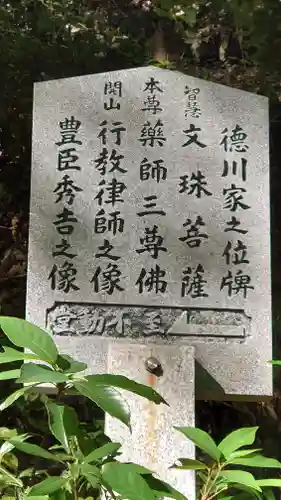 德川家之位牌
智慧 文珠菩薩
本尊 藥師三尊佛
開山 行教律師之像
豊臣秀吉之像